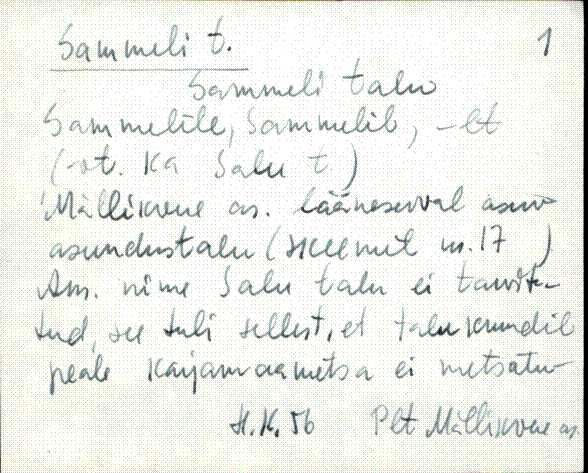 Sammeli t. 1
Sammeli talu
Sammelile, Sammelil, -lt
(vt. ka Salu t.)
Mällikvere as. lääneserval asuv
asundustalu (skeemil nr. 17 )
Am. nime Salu talu ei tarvita-
tud, see tuli sellest, et talu krundil
peale karjamaametsa ei metsatu-
H.K. 56 Plt Mällikvere as.